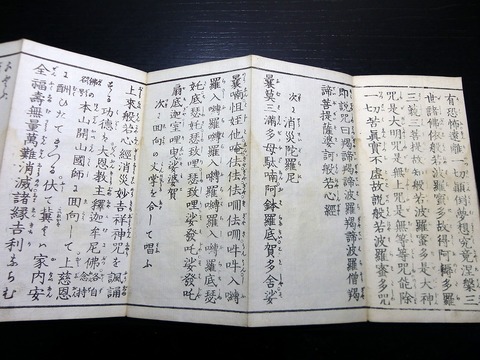 有恐怖遠離一切顛倒夢想究竟涅槃三
世諸佛依般若波羅蜜多故得阿耨多羅
三藐三菩提故知般若波羅蜜多是大神
咒是大明咒是無上咒是無等等咒能除
一切苦眞實不虛故說般若波羅蜜多咒
即說咒曰羯諦羯諦波羅羯諦波羅僧羯
諦菩提薩婆訶般若心經
次ニ消災陀羅尼
曩莫三滿多母馱喃阿鉢羅底賀多舍娑
曩喃怛姪他唵佉佉佉呬佉呬吽吽入嚩
羅入嚩羅鉢羅入嚩羅鉢羅入嚩羅底瑟
姹底瑟姹致哩瑟致哩娑發吒娑發吒
扇底迦室哩曳娑嚩賀
次ニ回向の文を合して唱ふ
上來般若心經消災妙吉祥神咒を諷誦
する功德は大恩教主釋迦牟尼佛
本山開山國師に回向して上慈恩
に酬ひたてまつる伏て冀くは家内安
全福壽無量萬難消滅諸縁吉利ならむ